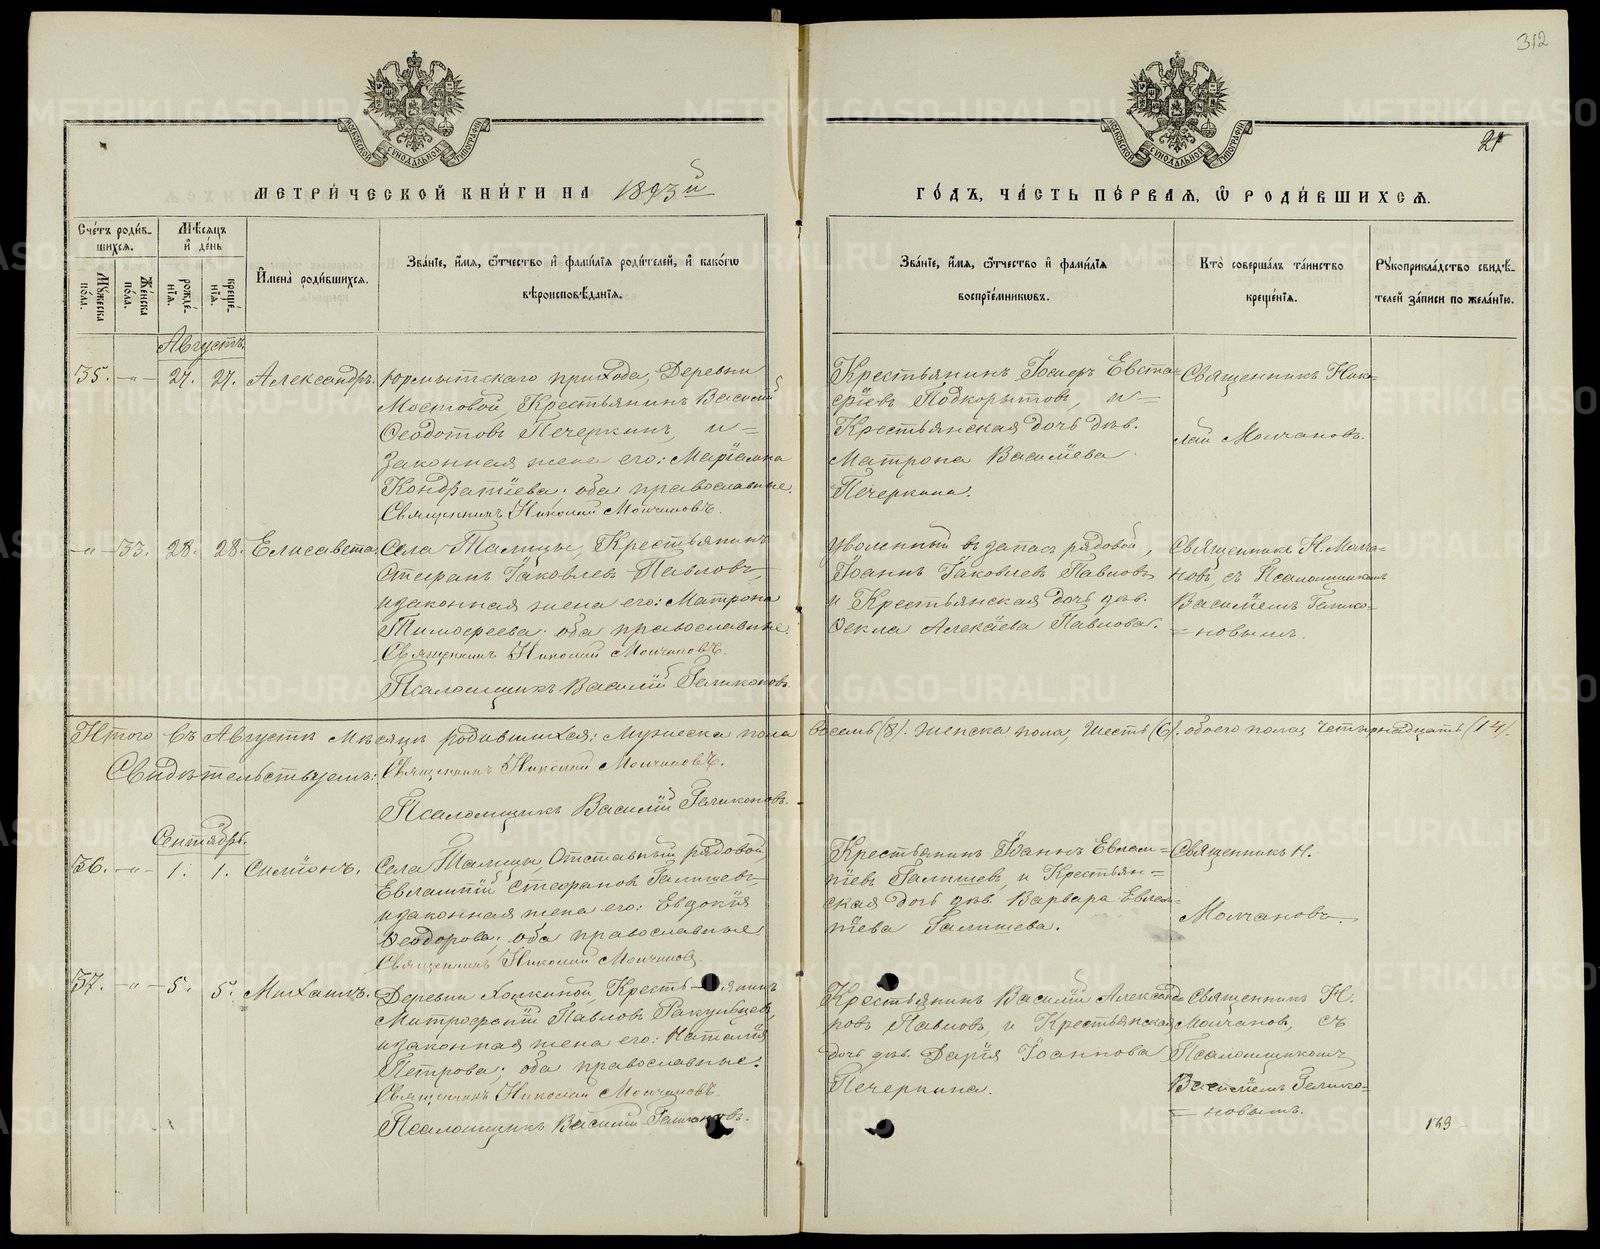 312
21
МОСКОВСКОЙ СѴНОДАЛЬНОЙ ТИПОГРАФІИ
МОСКОВСКОЙ СѴНОДАЛЬНОЙ ТИПОГРАФІИ
МЕТРИ́ЧЕСКОЙ КНИ́ГИ НА 1893й
ГО́ДЪ, ЧА́СТЬ ПЕ́РВАЯ, Ѡ РОДИ́ВШИХСЯ.
Сче́тъ роди́в-
шихся.
Мѣ́сяцъ
и҆ де́нь
Мꙋ́жеска по́ла.
Же́нска по́ла.
рожде́-
нїѧ.
креще́-
нїѧ.
И҆мена̀ роди́вшихся.
Зва́нїе, и҆́мя, ѻ҆́тчество и҆ фами́лїя роди́телей, и҆ како́гѡ
вѣроисповѣ́данїя.
Зва́нїе, и҆́мя, ѻ҆́тчество и҆ фами́лїя
воспрїе́мникѡвъ.
Кто̀ соверша́лъ та́инство
креще́нїя.
Рꙋкоприкла́дство свидѣ́-
телей за́писи по жела́нїю.
Августъ.
35. -"- 27. 27. Александръ.
Юрмытскаго прихода, Деревни
Мостовой, Крестьянинъ Василій
Ѳеодотовъ Печеркинъ, и=
законная жена его: Маріамна
Кондратіева; оба православные.
Священникъ Николай Молчановъ.
Крестьянинъ Іосифъ Евста=
фіевъ Подкорытовъ, и=
Крестьянская дочь дѣв.
Матрона Василіева
Печеркина.
Священникъ Нико=
лай Молчановъ.
-"- 33. 28. 28. Елисавета.
Села Талицы, Крестьянинъ
Стефанъ Іаковлевъ Павловъ,
и законная жена его: Матрона
Тимофеева; оба православные.
Священникъ Николай Молчановъ.
Псаломщикъ Василій Геликоновъ.
Уволенный въ запасъ рядовой,
Іоаннъ Іаковлевъ Павловъ
и Крестьянская дочь дѣв.
Ѳекла Алексіева Павлова.
Священникъ Н. Молча=
новъ, съ Псаломщикомъ
Василіемъ Гелико=
=новымъ.
Итого въ Августѣ мѣсяцѣ родившихся; Мужеска пола Восемь (8). женска пола, Шесть (6). обоего пола, Четырнадцать (14).
Свидѣтельствуемъ: Священникъ Николай Молчановъ.
Псаломщикъ Василій Геликоновъ.
Сентябрь.
36. -"- 1. 1. Симеонъ.
Села Талицы, Отставный рядовой,
Евлампій Стефановъ Галишевъ,
и законная жена его: Евдокія
Ѳеодорова; оба православные.
Священникъ Николай Молчановъ.
Крестьянинъ Іоаннъ Евлам=
піевъ Галишевъ, и Крестьян=
ская дочь дѣв. Варвара Евлам=
піева Галишева.
Священникъ Н.
Молчановъ.
37. -"- 5. 5. Михаилъ.
Деревни Хомкиной, Крестьянинъ
Митрофаній Павловъ Ракульцевъ,
и законная жена его: Наталія
Петрова; оба православные.
Священникъ Николай Молчановъ.
Псаломщикъ Василій Геликоновъ.
Крестьянинъ Василій Александ=
ровъ Павловъ, и Крестьянская
дочь дѣв. Дарія Іоаннова
Печеркина.
Священникъ Н.
Молчановъ, съ
Псаломщикомъ
Василіемъ Гелико=
=новымъ.
METRIKI.GASO-URAL.RU